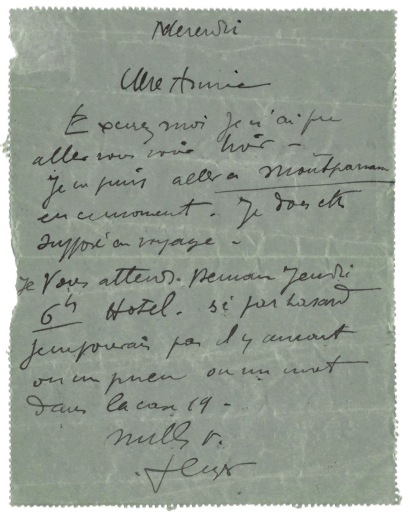 Mercredi
Chère Amie
Excusez moi je n'ai pu
aller vous voir hier -
je ne puis aller à Montparnasse
en ce moment. Je dois être
supposé en voyage -
Je vous attends. Demain Jeudi
6h Hotel. si par hasard
je ne pouvais pas il y aurait
ou un pneu ou un mot
dans la case 19 -
mille